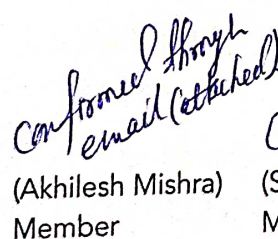 confirmed through
email (attached)
(Akhilesh Mishra) (S
Member M